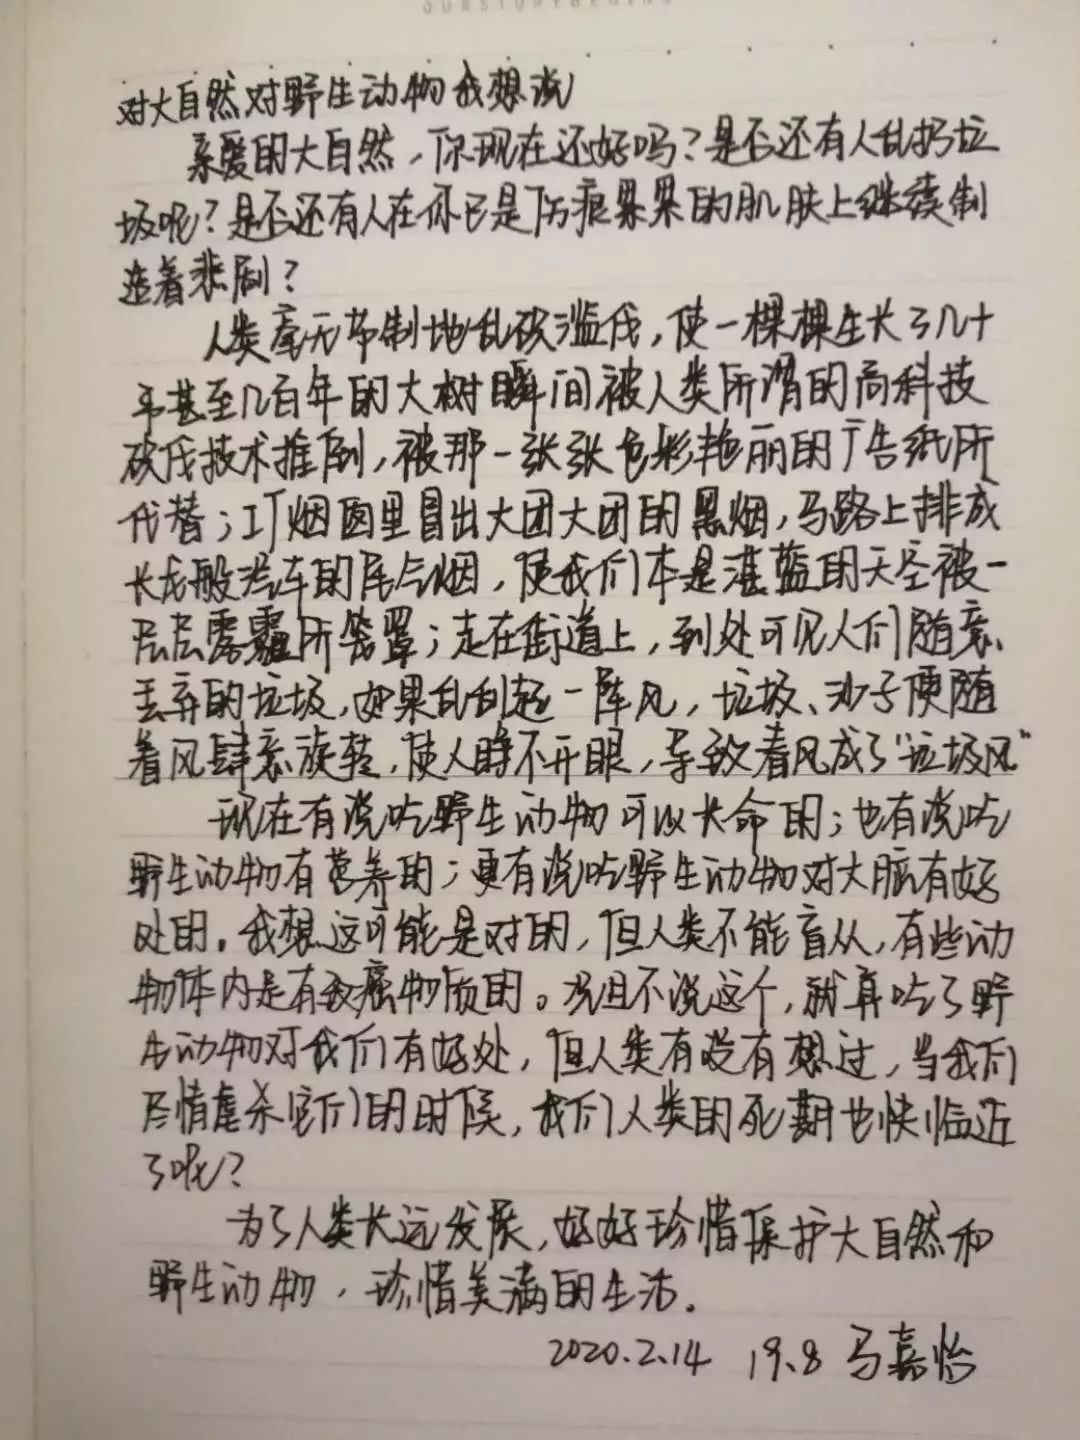 对大自然对野生动物我想说
亲爱的大自然，你现在还好吗？是否还有人乱扔垃
圾呢？是否还有人在你已是伤痕累累的肌肤上继续制
造着悲剧？
人类毫无节制地乱砍滥伐，使一棵棵生长了几十
年甚至几百年的大树瞬间被人类所谓的高科技
砍伐技术推倒，被那一张张色彩艳丽的广告纸所
代替；工厂烟囱里冒出大团大团的黑烟，马路上排成
长龙般汽车的尾气烟，使我们本是湛蓝的天空被一
层层雾霾所笼罩；走在街道上，到处可见人们随意
丢弃的垃圾，如果乱刮起一阵风，垃圾、沙子便随
着风肆意旋转，使人睁不开眼，导致春风成了“垃圾风”
现在有说吃野生动物可以长命的；也有说吃
野生动物有营养的；更有说吃野生动物对大脑有好
处的。我想这可能是对的，但人类不能盲从，有些动
物体内是有致癌物质的。况且不说这个，就算吃了野
生动物对我们有好处，但人类有没有想过，当我们
尽情虐杀它们的时候，我们人类的死期也快临近
了呢？
为了人类长远发展，好好珍惜保护大自然和
野生动物，珍惜美满的生活。
2020.2.14 19.8 马嘉怡